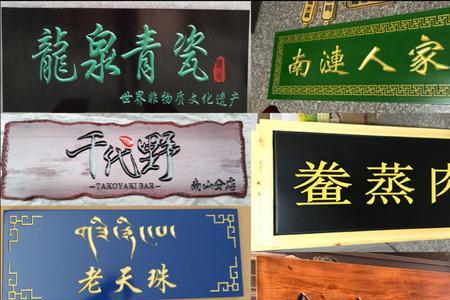 龍泉青瓷
世界非物质文化遗产
南漣人家
千代野
—TAKOYAKI BAR—
南山分店
鲞蒸肉
老天珠